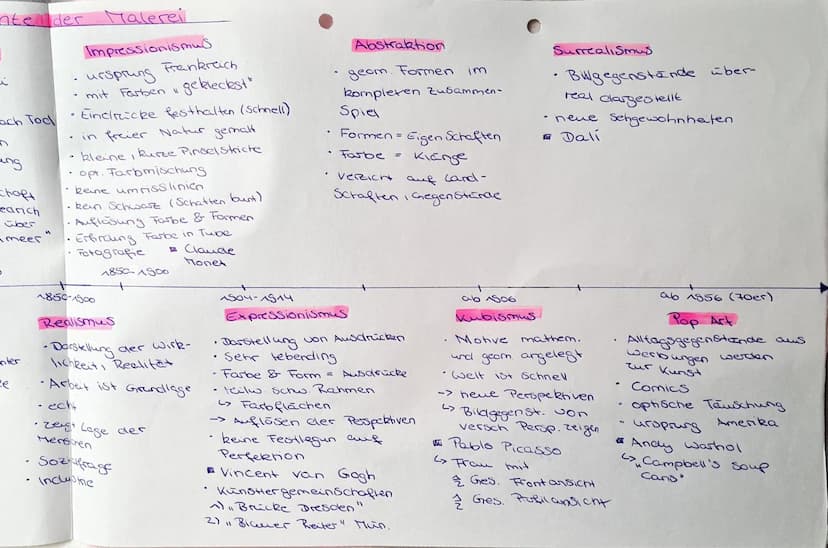 nten der Malerei
Impressionismus
• ursprung Frankreich
• mit Farben „gekleckst"
• Eindrücke festhalten (Schnell)
• in freier Natur gemalt
• kleine, kurze Pinselstriche
• opt. Farbmischung
• keine umrisslinien
• kein Schwarz (Schatten bunt)
• Auflösung Farbe & Formen
• Erfindung Farbe in Tube
• Fotografie
▪ Claude
Monet
1850-1900
Abstraktion
• geom. Formen im
kompleren Zusammen-
Spiel
• Formen = Eigenschaften
• Farbe = Klänge
• verzicht auf Land-
Schaften, Gegenstände
Surrealismus
• Bildgegenstände über-
real dargestellt
• neue Sehgewohnheiten
▪ Dali
ach Tod
n
ung
chaft
earich
über
meer"
1850-1900
Realismus
• Darstellung der Wirk-
lichkeit, Realität
• Arbeit ist Grundlage
• echt
• zeigt Lage der
Menschen
• Sozialfrage
• Industrie
1904-1914
Expressionismus
• Darstellung von Ausdrücken
• Sehr lebending
• Farbe & Form = Ausdrücke
• teilw. schw. Rahmen
↳ Farbflächen
→ Auflösen der Perspektiven
• keine Festlegun auf
Perfektion
▪ Vincent van Gogh
• Künstlergemeinschaften
1) „Brücke Dresden"
2) „Blauer Reiter" Mün.
ab 1906
Kubismus
• Motive mathem.
und geom angelegt
• Welt ist schnell
→ neue Perspektiven
↳ Bildgegenst. von
versch Persp. zeigen
▪ Pablo Picasso
↳ Frau mit
½ Ges. Frontansicht
½ Ges. Profilansicht
ab 1956 (70er)
Pop Art
• Alltagsgegenstände aus
Werbungen werden
zur Kunst
• Comics
• optische Täuschung
• ursprung Amerika
▪ Andy Warhol
↳ „Campbell's Soup
Cans"